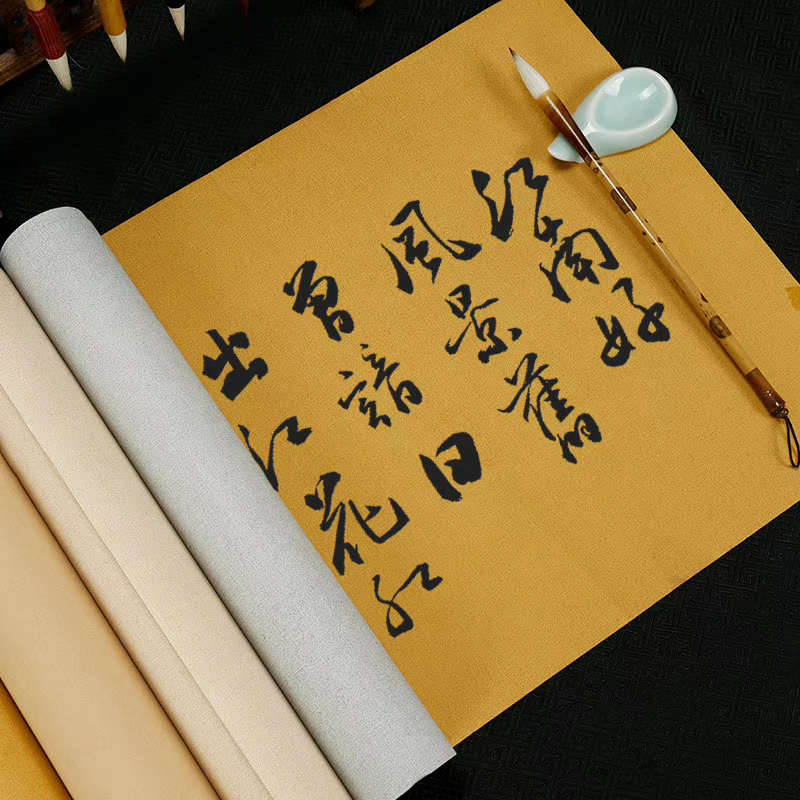 江南好
風景舊
曾諳日
出江花紅